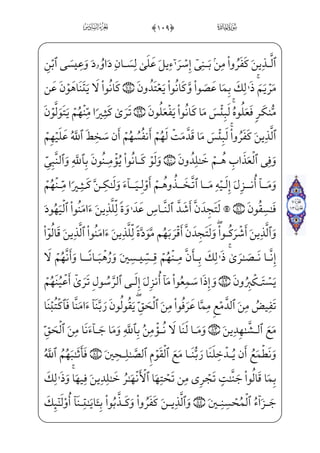 الجزء السادس ﴿١٠٩﴾ سورة المائدة
ٱلَّذِينَ كَفَرُوا۟ مِنۢ بَنِىٓ إِسْرَٰٓءِيلَ عَلَىٰ لِسَانِ دَاوُۥدَ وَعِيسَى ٱبْنِ
مَرْيَمَ ۚ ذَٰلِكَ بِمَا عَصَوا۟ وَّكَانُوا۟ يَعْتَدُونَ ۝ كَانُوا۟ لَا يَتَنَاهَوْنَ عَن
مُّنكَرٍ فَعَلُوهُ ۚ لَبِئْسَ مَا كَانُوا۟ يَفْعَلُونَ ۝ تَرَىٰ كَثِيرًا مِّنْهُمْ يَتَوَلَّوْنَ
ٱلَّذِينَ كَفَرُوا۟ ۚ لَبِئْسَ مَا قَدَّمَتْ لَهُمْ أَنفُسُهُمْ أَن سَخِطَ ٱللَّهُ عَلَيْهِمْ
وَفِى ٱلْعَذَابِ هُمْ خَٰلِدُونَ ۝ وَلَوْ كَانُوا۟ يُؤْمِنُونَ بِٱللَّهِ وَٱلنَّبِىِّ
وَمَآ أُنزِلَ إِلَيْهِ مَا ٱتَّخَذُوهُمْ أَوْلِيَآءَ وَلَٰكِنَّ كَثِيرًا مِّنْهُمْ
فَٰسِقُونَ ۝ ۞ لَتَجِدَنَّ أَشَدَّ ٱلنَّاسِ عَدَٰوَةً لِّلَّذِينَ ءَامَنُوا۟ ٱلْيَهُودَ
وَٱلَّذِينَ أَشْرَكُوا۟ ۖ وَلَتَجِدَنَّ أَقْرَبَهُم مَّوَدَّةً لِّلَّذِينَ ءَامَنُوا۟ ٱلَّذِينَ قَالُوٓا۟
إِنَّا نَصَٰرَىٰ ۚ ذَٰلِكَ بِأَنَّ مِنْهُمْ قِسِّيسِينَ وَرُهْبَانًا وَأَنَّهُمْ لَا
يَسْتَكْبِرُونَ ۝ وَإِذَا سَمِعُوا۟ مَآ أُنزِلَ إِلَى ٱلرَّسُولِ تَرَىٰٓ أَعْيُنَهُمْ
تَفِيضُ مِنَ ٱلدَّمْعِ مِمَّا عَرَفُوا۟ مِنَ ٱلْحَقِّ ۖ يَقُولُونَ رَبَّنَآ ءَامَنَّا فَٱكْتُبْنَا
مَعَ ٱلشَّٰهِدِينَ ۝ وَمَا لَنَا لَا نُؤْمِنُ بِٱللَّهِ وَمَا جَآءَنَا مِنَ ٱلْحَقِّ
وَنَطْمَعُ أَن يُدْخِلَنَا رَبُّنَا مَعَ ٱلْقَوْمِ ٱلصَّٰلِحِينَ ۝ فَأَثَٰبَهُمُ ٱللَّهُ
بِمَا قَالُوا۟ جَنَّٰتٍ تَجْرِى مِن تَحْتِهَا ٱلْأَنْهَٰرُ خَٰلِدِينَ فِيهَا ۚ وَذَٰلِكَ
جَزَآءُ ٱلْمُحْسِنِينَ ۝ وَٱلَّذِينَ كَفَرُوا۟ وَكَذَّبُوا۟ بِـَٔايَٰتِنَآ أُو۟لَٰٓئِكَ